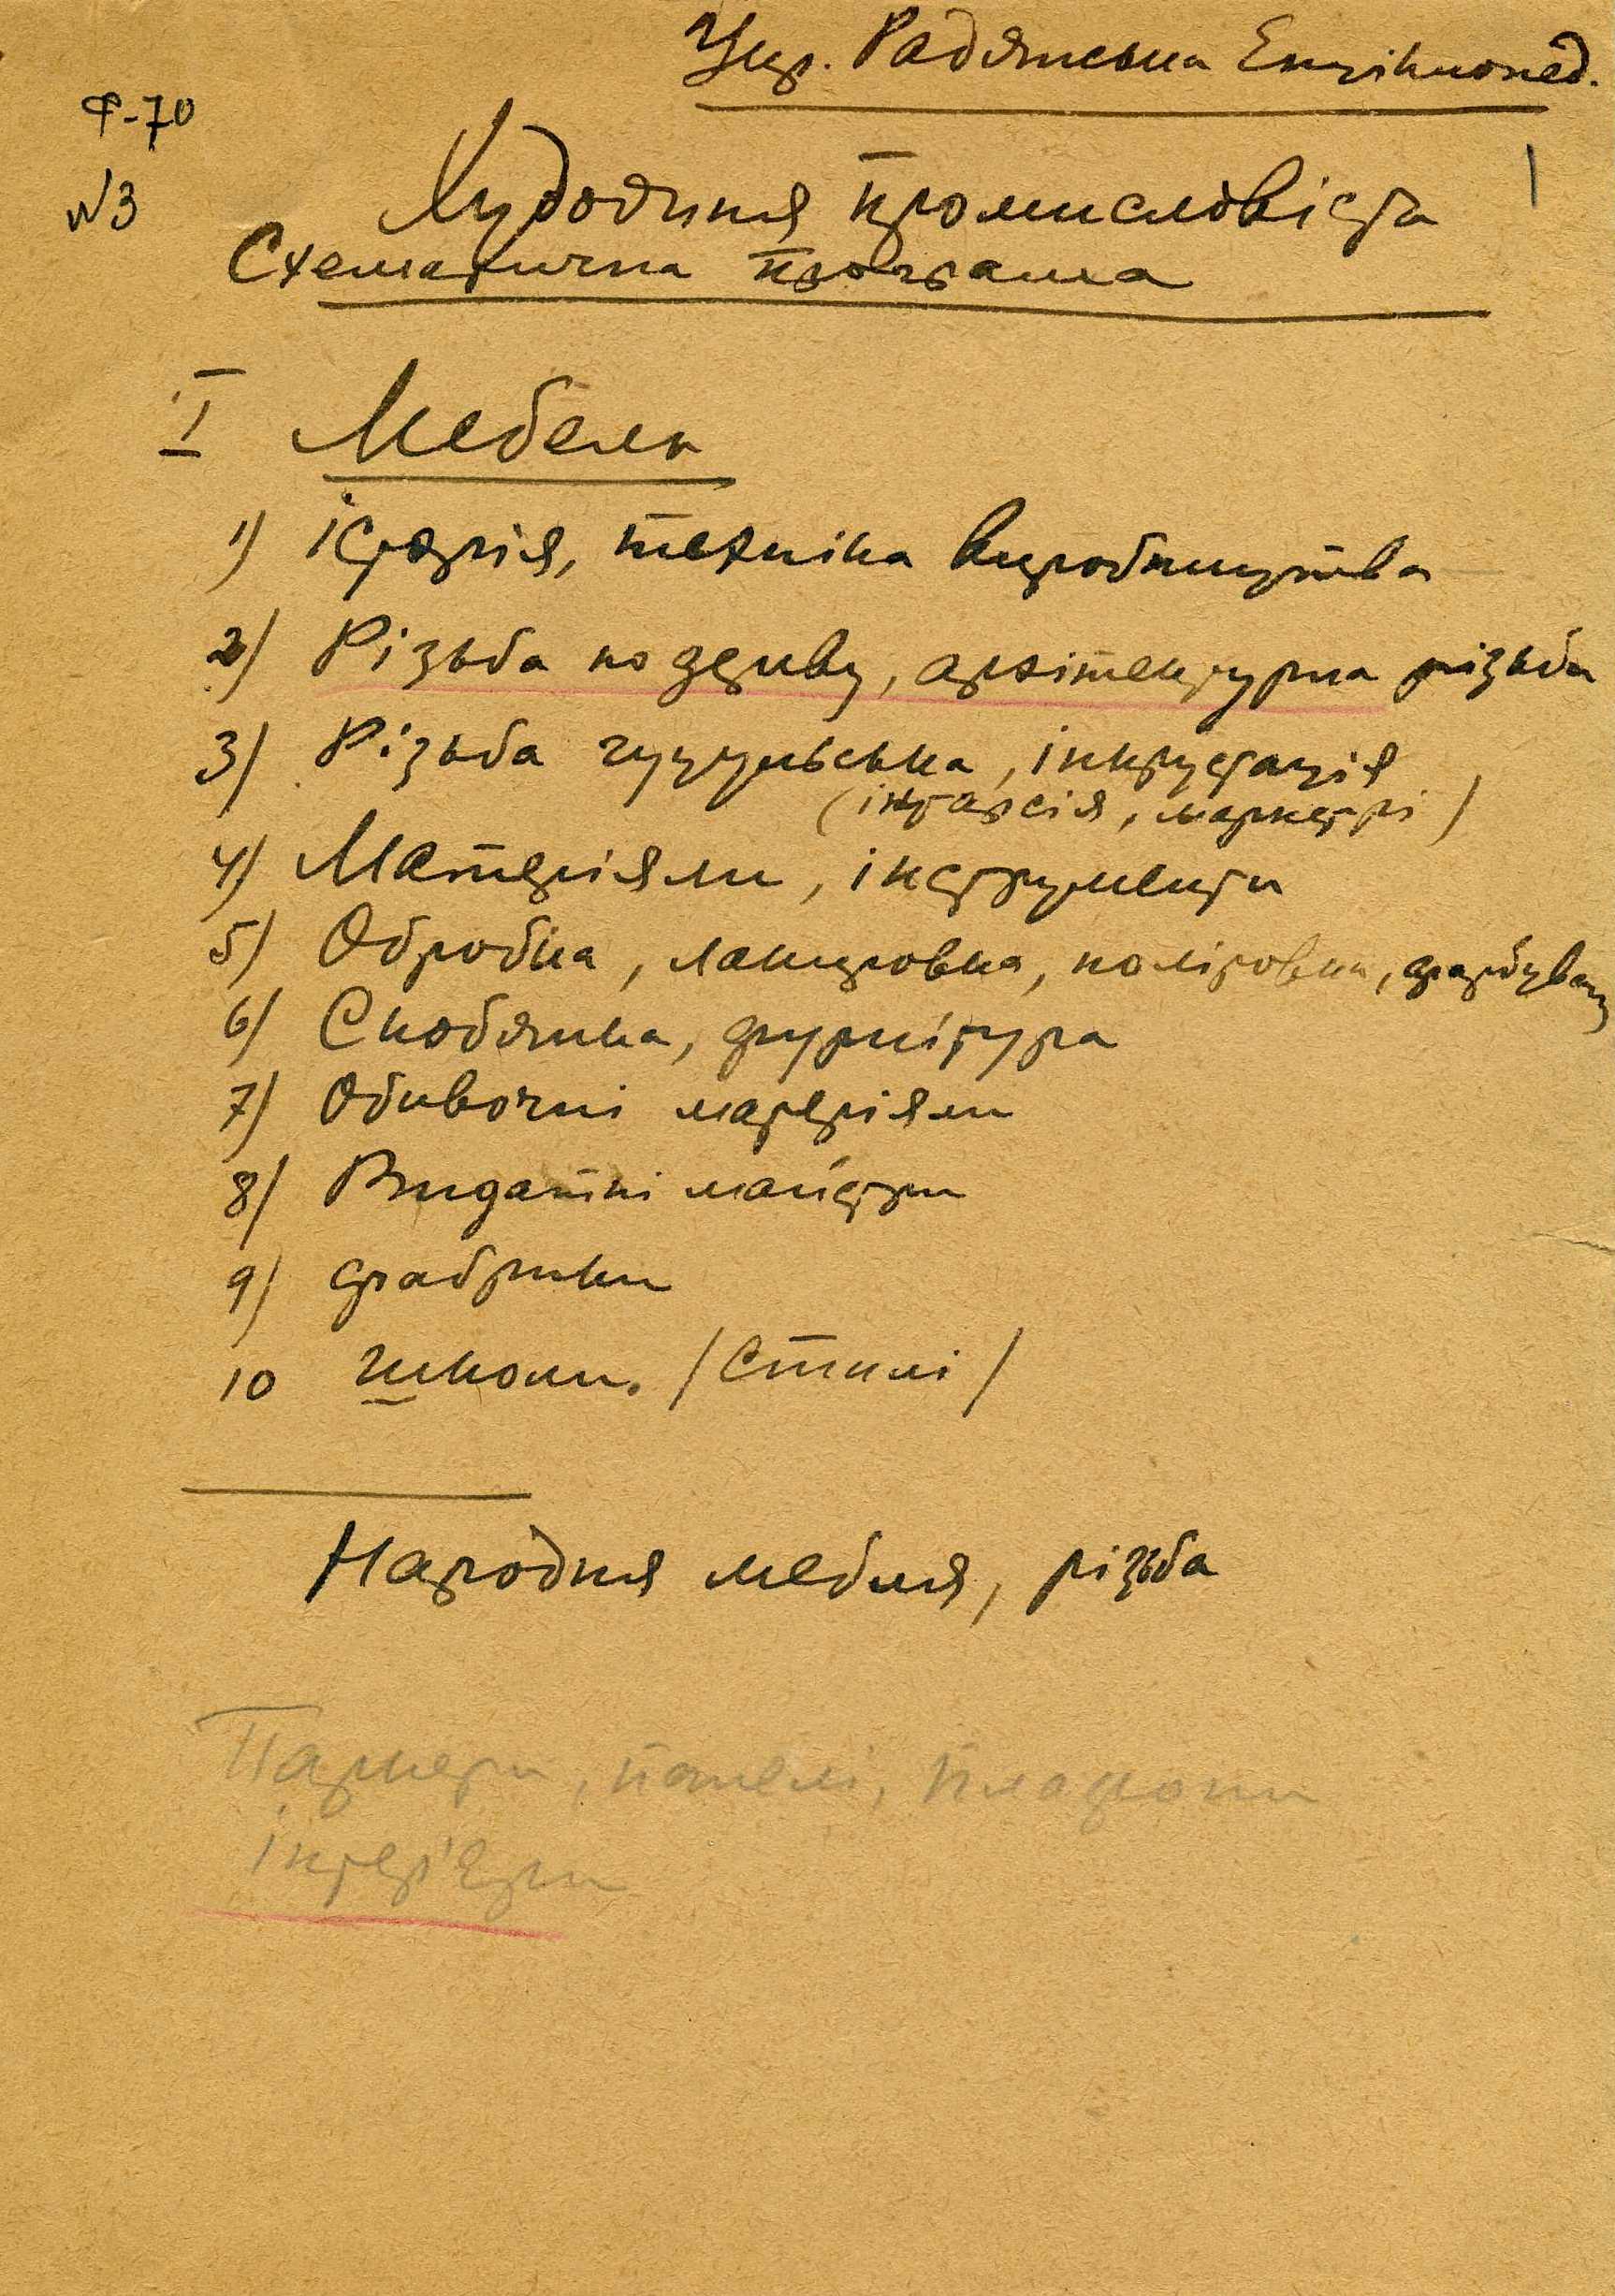 Укр. Радянська Енциклопед.
Ф-70
№3
1
Художня промисловість
Схематична програма
I Мебель
1) Історія, техніка виробництва
2) Різьба по дереву, архітектурна різьба
3) Різьба гуцульська, інкрустація
(інтарсія, маркетрі)
4) Матеріяли, інструменти
5) Обробка, лакировка, поліровка, фарбуван
6) Скобянка, фурнітура
7) Обивочні матеріяли
8) Видатні майстри
9) фабрики
10 школи. /Стилі/
Народня мебля, різьба
Паркети, панелі, плафони
інтер'єри